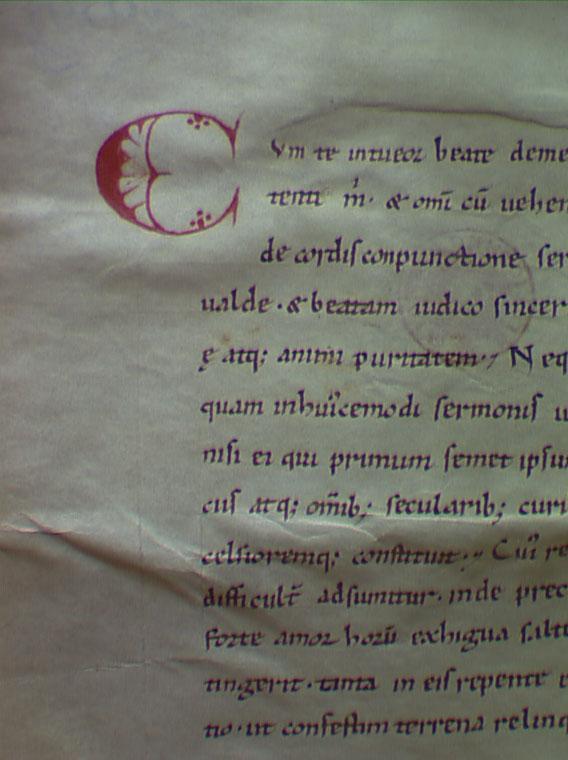 Cum te intueor beate deme
tenti m̃. & om̄i cū uehen
de cordis conpunctione ser
ualde · & beatam iudico sincer
ę atq; animi puritatem·, Neq
quam inhuı̉cemodi sermonis u
nisi ei qui primum semet ipsu
cus atq; om̄ib; secularib; curi
celsioremq; constituit·, Cuı̉ re
difficult̄ adsumitur. inde prec
forte amor horū exhigua salte
tingerit · tanta in eis repente e
tio · ut confestim terrena relinq